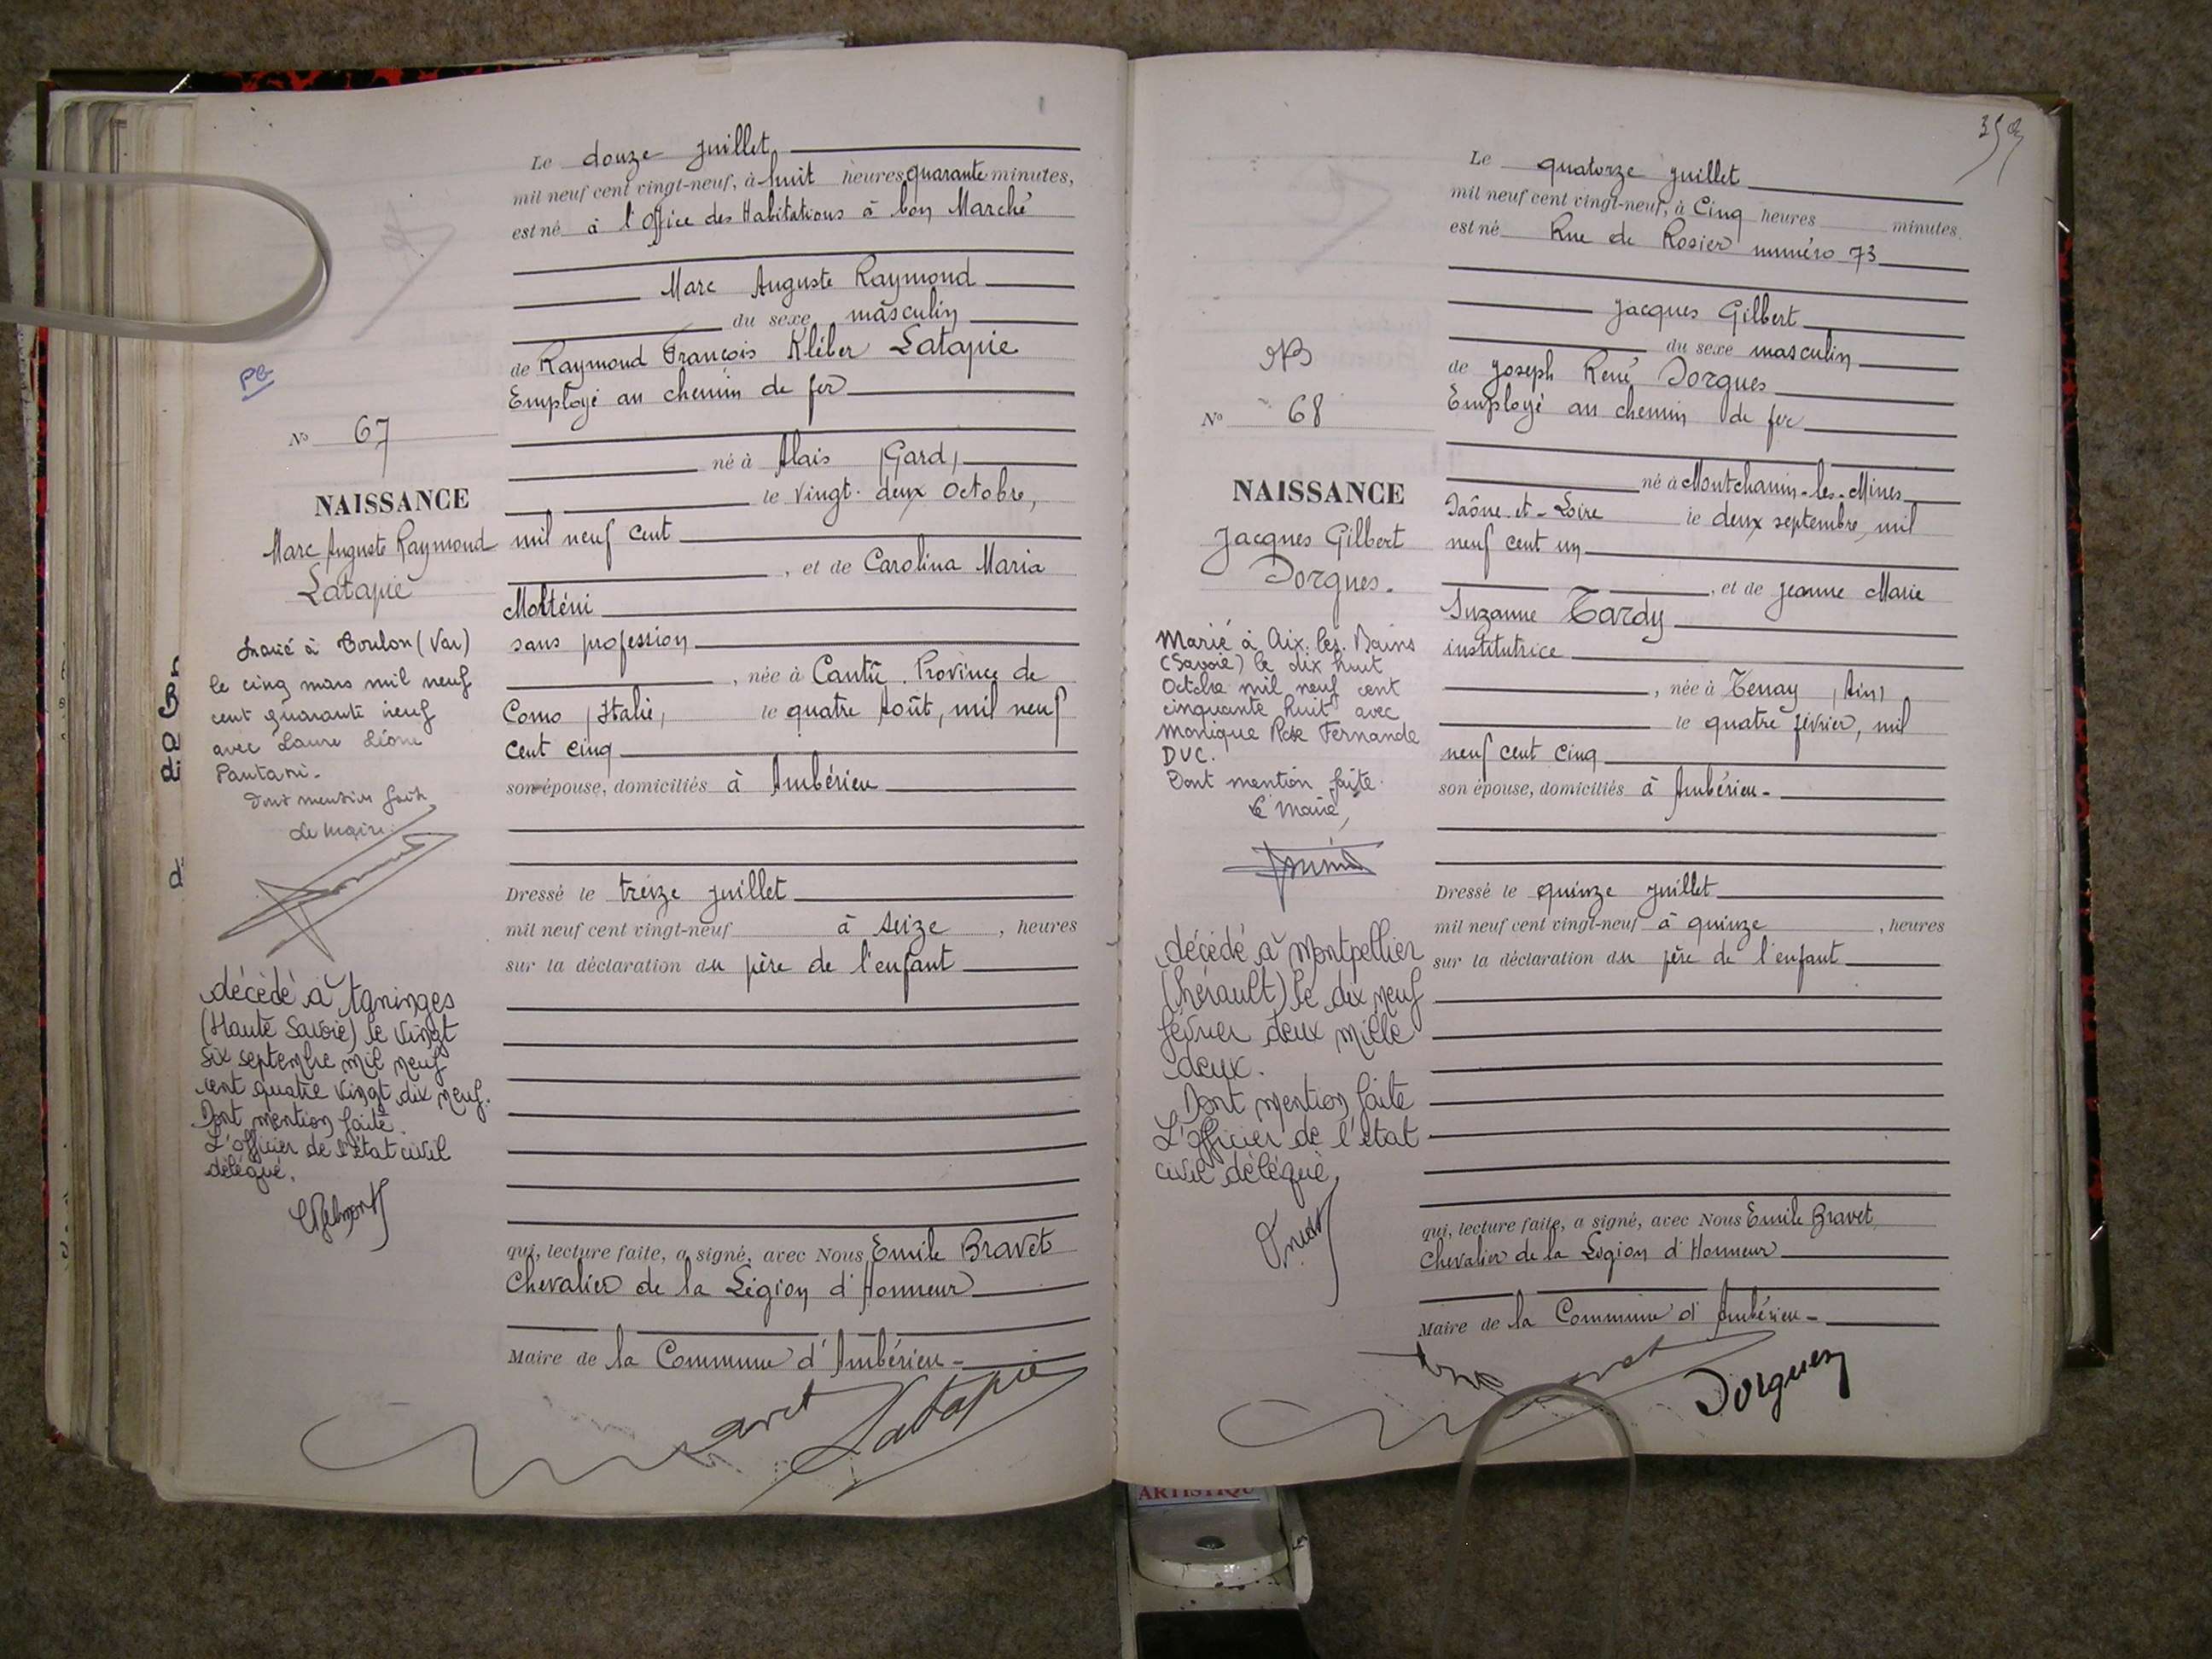 Le douze juillet
mil neuf cent vingt-neuf, à huit heures quarante minutes,
est né à l'Office des Habitations à bon Marché
Marc Auguste Raymond
du sexe masculin
de Raymond François Kléber Latapie
Employé au chemin de fer
né à Alais (Gard)
le vingt-deux Octobre,
mil neuf cent
, et de Carolina Maria
Molténi
sans profession
, née à Cantù. Province de
Como (Italie) le quatre Août, mil neuf
cent cinq
son épouse, domiciliés à Ambérieu
Dressé le treize juillet
mil neuf cent vingt-neuf à seize , heures
sur la déclaration du père de l'enfant
qui, lecture faite, a signé, avec Nous Emile Bravet
Chevalier de la Légion d'Honneur
Maire de la Commune d'Ambérieu -
Latapie
PB
No 67
NAISSANCE
Marc Auguste Raymond
Latapie
Marié à Toulon (Var)
le cinq mars mil neuf
cent quarante neuf
avec Laure Léone
Pantani.
Dont mention faite
Le Maire.
décédé à Taninges
(Haute Savoie) le vingt
six septembre mil neuf
cent quatre vingt dix neuf.
Dont mention faite.
L'officier de l'état civil
délégué.
Le quatorze juillet
mil neuf cent vingt-neuf, à Cinq heures minutes.
est né Rue de Rosier numéro 73
Jacques Gilbert
du sexe masculin
de Joseph René Dorgues
Employé au chemin de fer
né à Montchanin-les-Mines
Saône-et-Loire le deux septembre, mil
neuf cent un
, et de Jeanne Marie
Suzanne Tardy
institutrice
, née à Tenay (Ain)
le quatre février, mil
neuf cent cinq
son épouse, domiciliés à Ambérieu -
Dressé le quinze juillet
mil neuf cent vingt-neuf à quinze , heures
sur la déclaration du père de l'enfant
qui, lecture faite, a signé, avec Nous Emile Bravet
Chevalier de la Légion d'Honneur
Maire de la Commune d'Ambérieu -
Dorgues
No 68
NAISSANCE
Jacques Gilbert
Dorgues.
Marié à Aix.les.Bains
(Savoie) le dix huit
Octobre mil neuf cent
cinquante huit avec
Monique Rose Fernande
DUC.
Dont mention faite.
Le Maire,
décédé à Montpellier
(hérault) le dix neuf
février deux mille
deux.
Dont mention faite
L'officier de l'état
civil délégué
ARTISTIQU